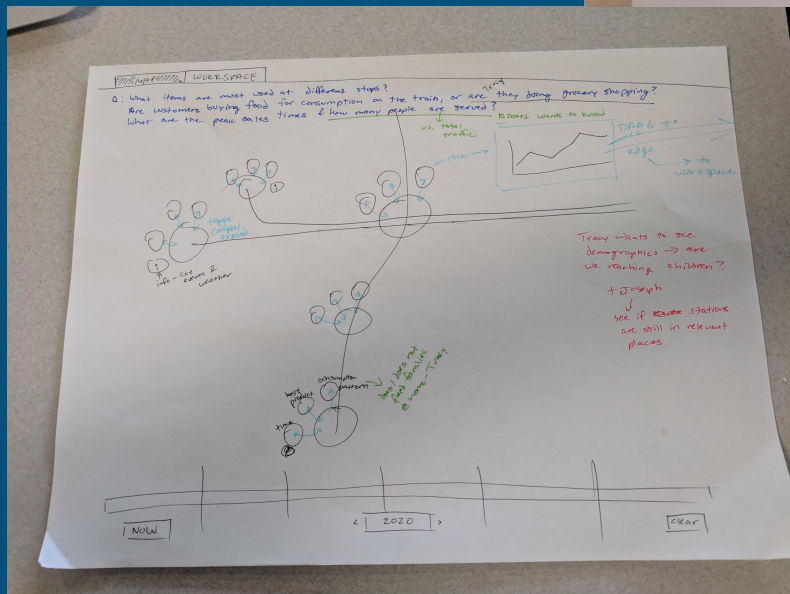 MAP WORKSPACE
Q: What items are most used at different stops?
Are customers buying food for consumption on the train, or are they doing grocery shopping?
What are the peak sales times & how many people are served?
vs. total
traffic
wants to know
click
DRAG +
edge
to
workspace
toggle
collapse/
expand
info - like
events &
weather
Tracy wants to see
demographics → are
we reaching children?
+ Joseph
see if stations
are still in relevant
places
consumption
pattern
best
product
time
does/does not
feed families
@ home - Tracy
NOW
< 2020 >
clear